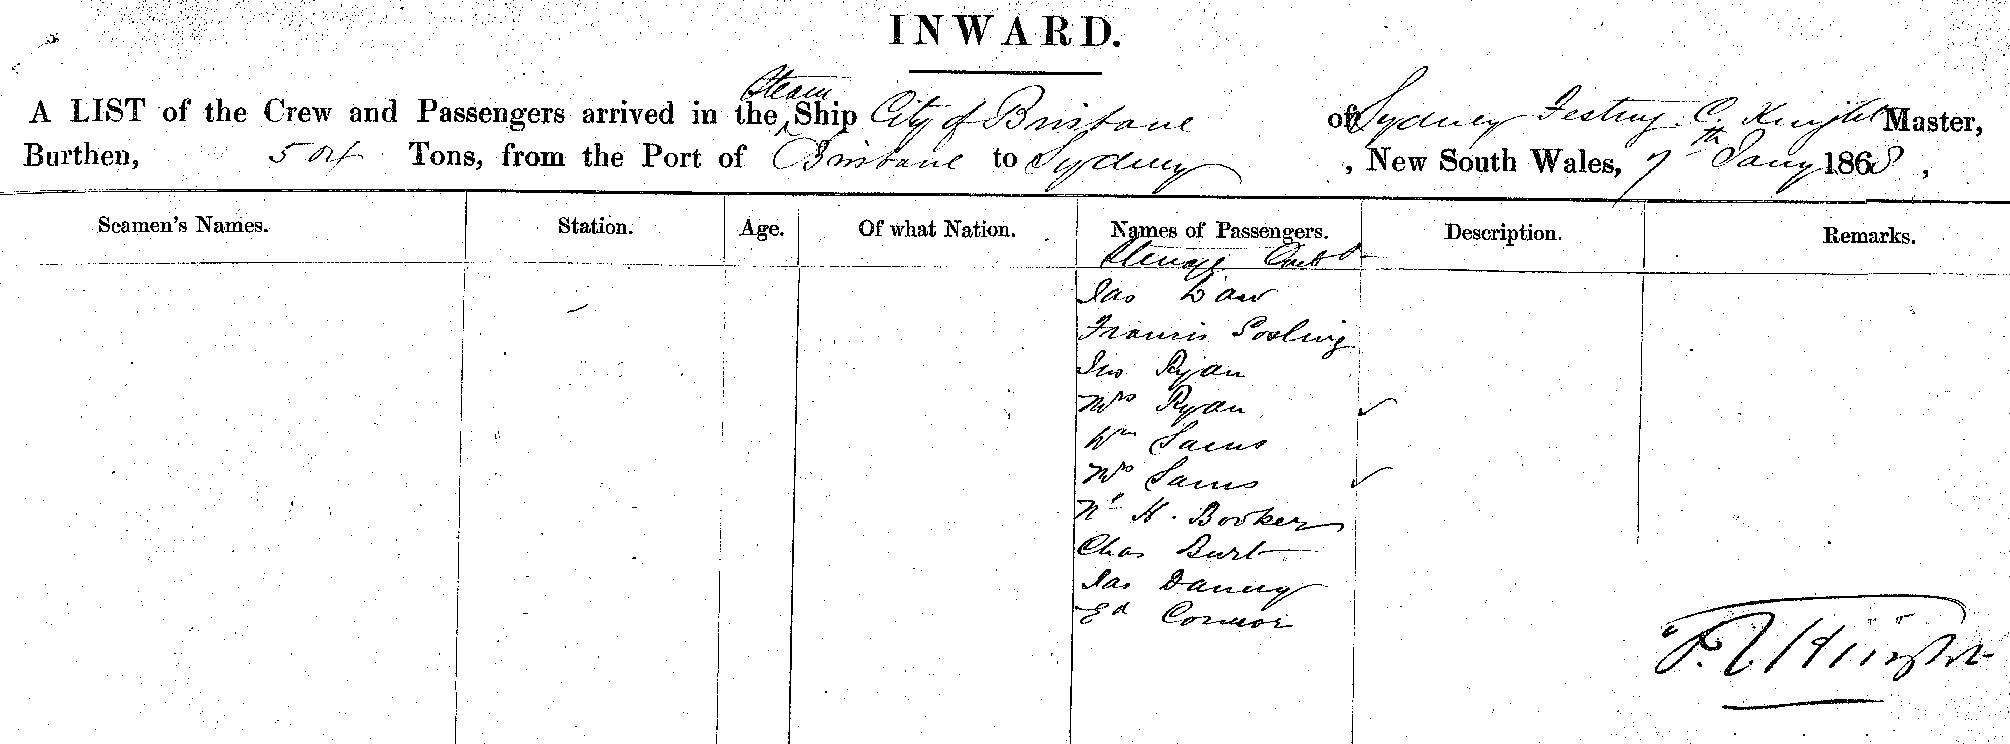 INWARD.
A LIST of the Crew and Passengers arrived in the Steam Ship City of Brisbane of Sydney Festing. C. Knight Master,
Burthen, 504 Tons, from the Port of Brisbane to Sydney, New South Wales, 7th Jany 1868,
Seamen's Names. Station. Age. Of what Nation. Names of Passengers. Description. Remarks.
Steerage
Jas Law
Francis Gosling
Jno Ryan
Mrs Ryan ✓
Wm Sams
Mrs Sams ✓
H. Booker
Chas Burt
Jas
Ed Connor
Knight